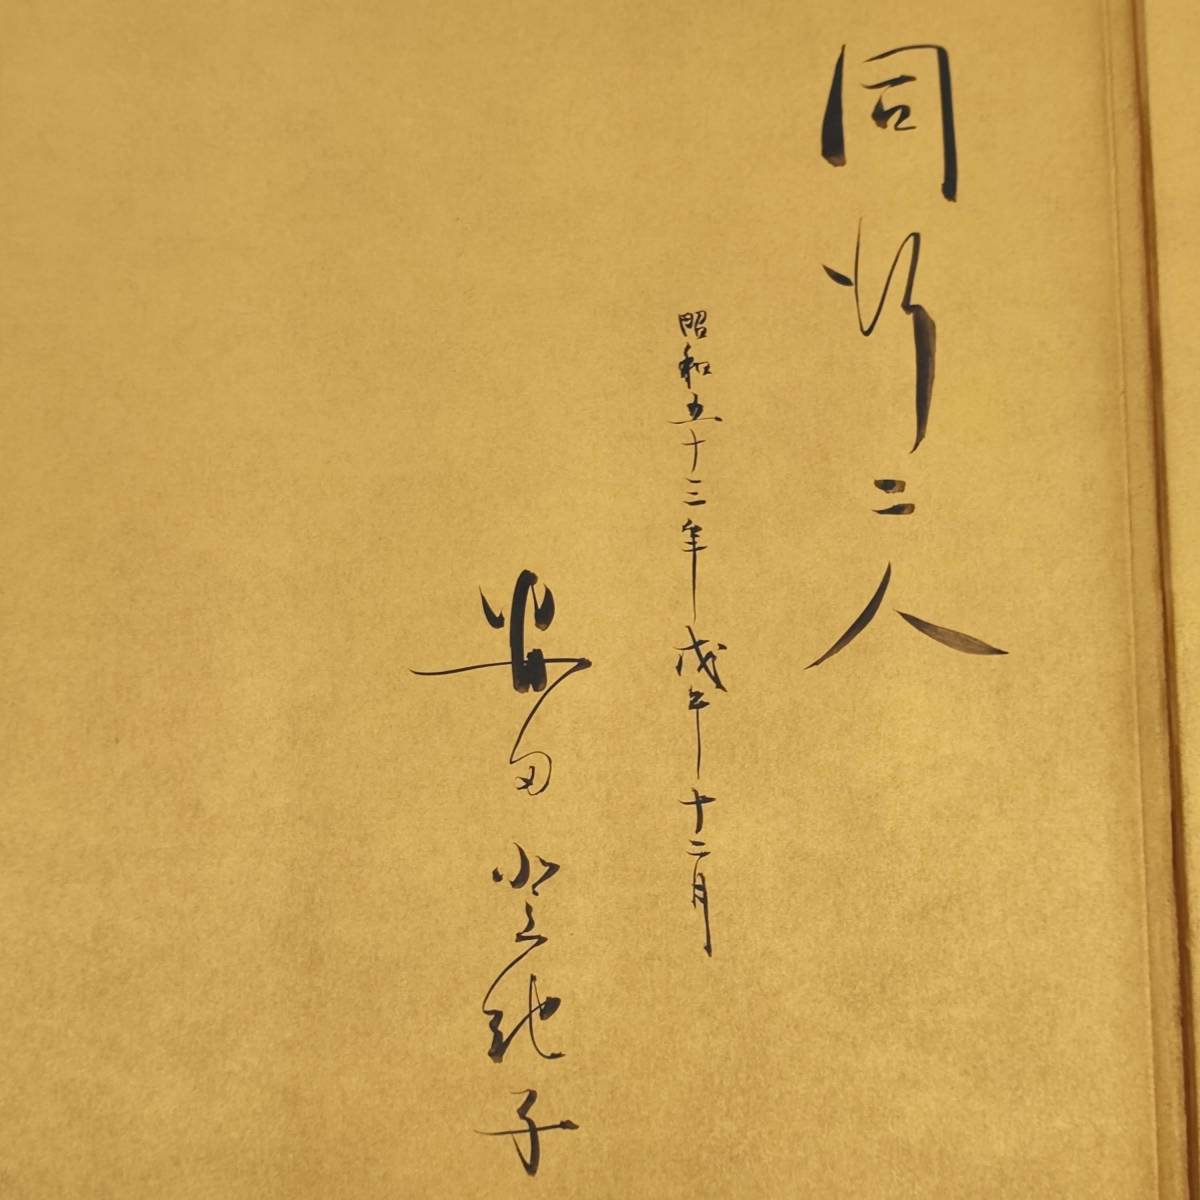 同行二人
昭和五十三年戊午十二月
田
子